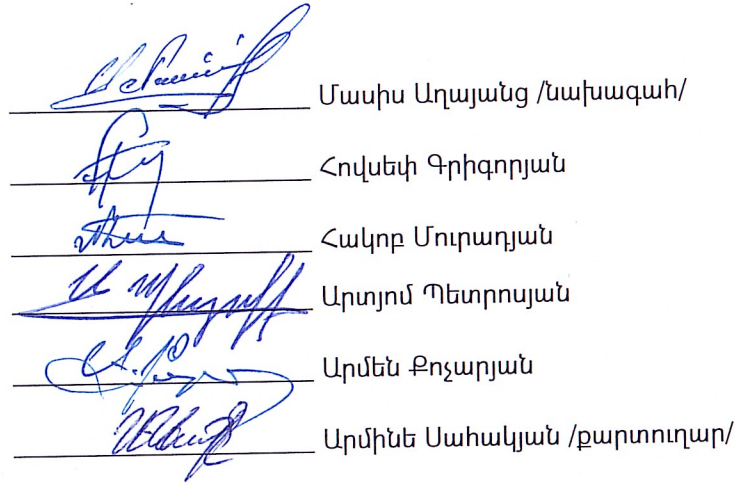 Մասիս Աղայանց /նախագահ/
Հովսեփ Գրիգորյան
Հակոբ Մուրադյան
Արտյոմ Պետրոսյան
Արմեն Քոչարյան
Արմինե Սահակյան /քարտուղար/